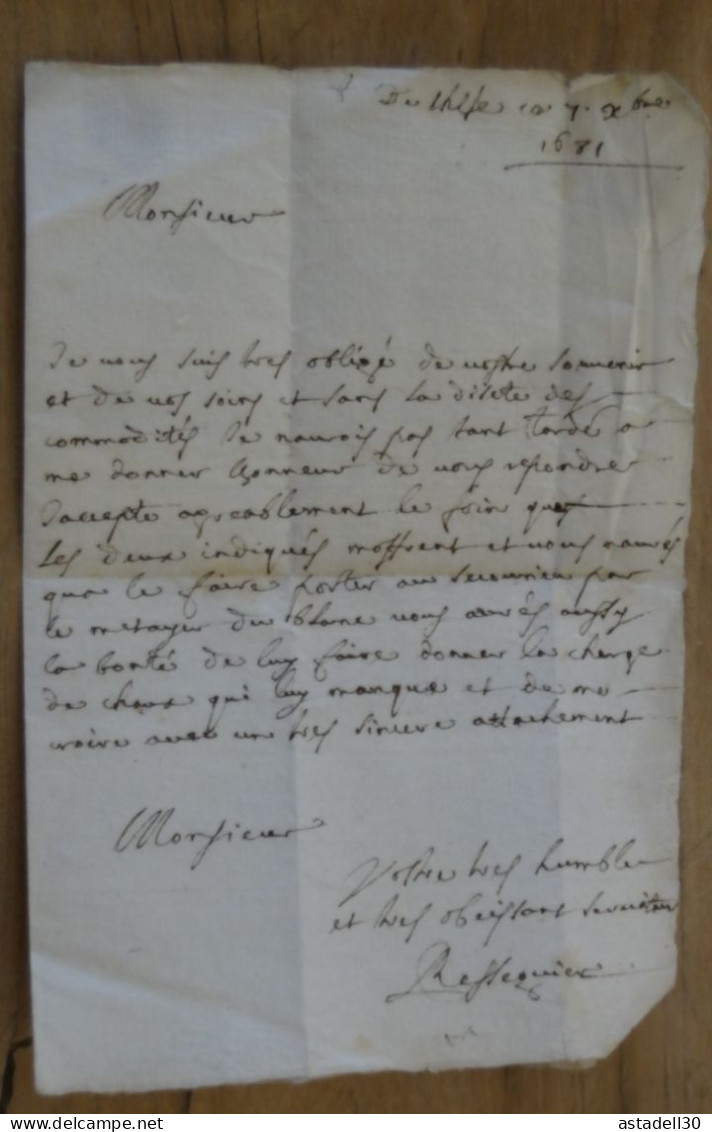 De ce 7 xbre
1681
Monsieur
Je vous suis tres obligé de vostre souvenir
et de vos soins et sans la disete des
commodités Je naurois pas tant tardé a
me donner lhonneur de vous repondre
Jaccepte agreablement le foin que
Les deux indiqués moffrent et vous naurés
que le faire porter au secourieu par
le metayer du blanc vous aurés aussy
la bonté de luy faire donner la charge
de chaux qui luy manque et de me
croire avec un tres sincere attachement
Monsieur
Vostre tres humble
et tres obeissant serviteur
Resseguier
astadell30